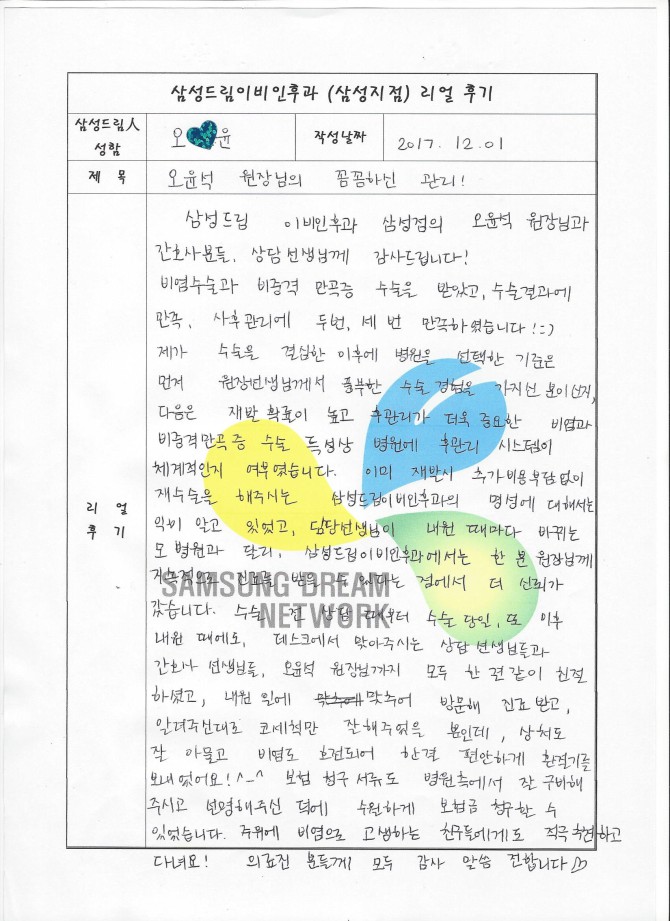 삼성드림이비인후과 (삼성지점) 리얼 후기
삼성드림人 성함 오 윤 작성날짜 2017. 12. 01
제 목 오윤석 원장님의 꼼꼼하신 관리!
리 얼
후 기
삼성드림 이비인후과 삼성점의 오윤석 원장님과
간호사분들, 상담선생님께 감사드립니다!
비염수술과 비중격 만곡증 수술을 받았고, 수술결과에
만족, 사후관리에 두번, 세 번 만족하였습니다!:)
제가 수술을 결심한 이후에 병원을 선택한 기준은
먼저 원장선생님께서 풍부한 수술경험을 가지신 분이신지,
다음은 재발 확률이 높고 후관리가 더욱 중요한 비염과
비중격만곡증 수술 특성상 병원에 후관리 시스템이
체계적인지 여부였습니다. 이미 재발시 추가비용부담없이
재수술을 해주시는 삼성드림이비인후과의 명성에 대해서는
익히 알고 있었고, 담당선생님이 내원 때마다 바뀌는
모 병원과 달리, 삼성드림이비인후과에서는 한 분 원장님께
지속적으로 진료를 받을 수 있다는 점에서 더 신뢰가
SAMSUNG DREAM
NETWORK
갔습니다. 수술 전 상담 때부터 수술 당일, 또 이후
내원 때에도, 데스크에서 맞아주시는 상담 선생님들과
간호사 선생님들, 오윤석 원장님까지 모두 한결같이 친절
하셨고, 내원 일에 맞추어 방문해 진료 받고,
알려주신대로 코세척만 잘해주었을 뿐인데, 상처도
잘 아물고 비염도 호전되어 한결 편안하게 환절기를
보내었어요! ^-^ 보험 청구 서류도 병원측에서 잘 구비해
주시고 설명해주신 덕에 수월하게 보험금 청구할 수
있었습니다. 주위에 비염으로 고생하는 친구들에게도 적극 추천하고
다녀요! 의료진 분들께 모두 감사 말씀 전합니다